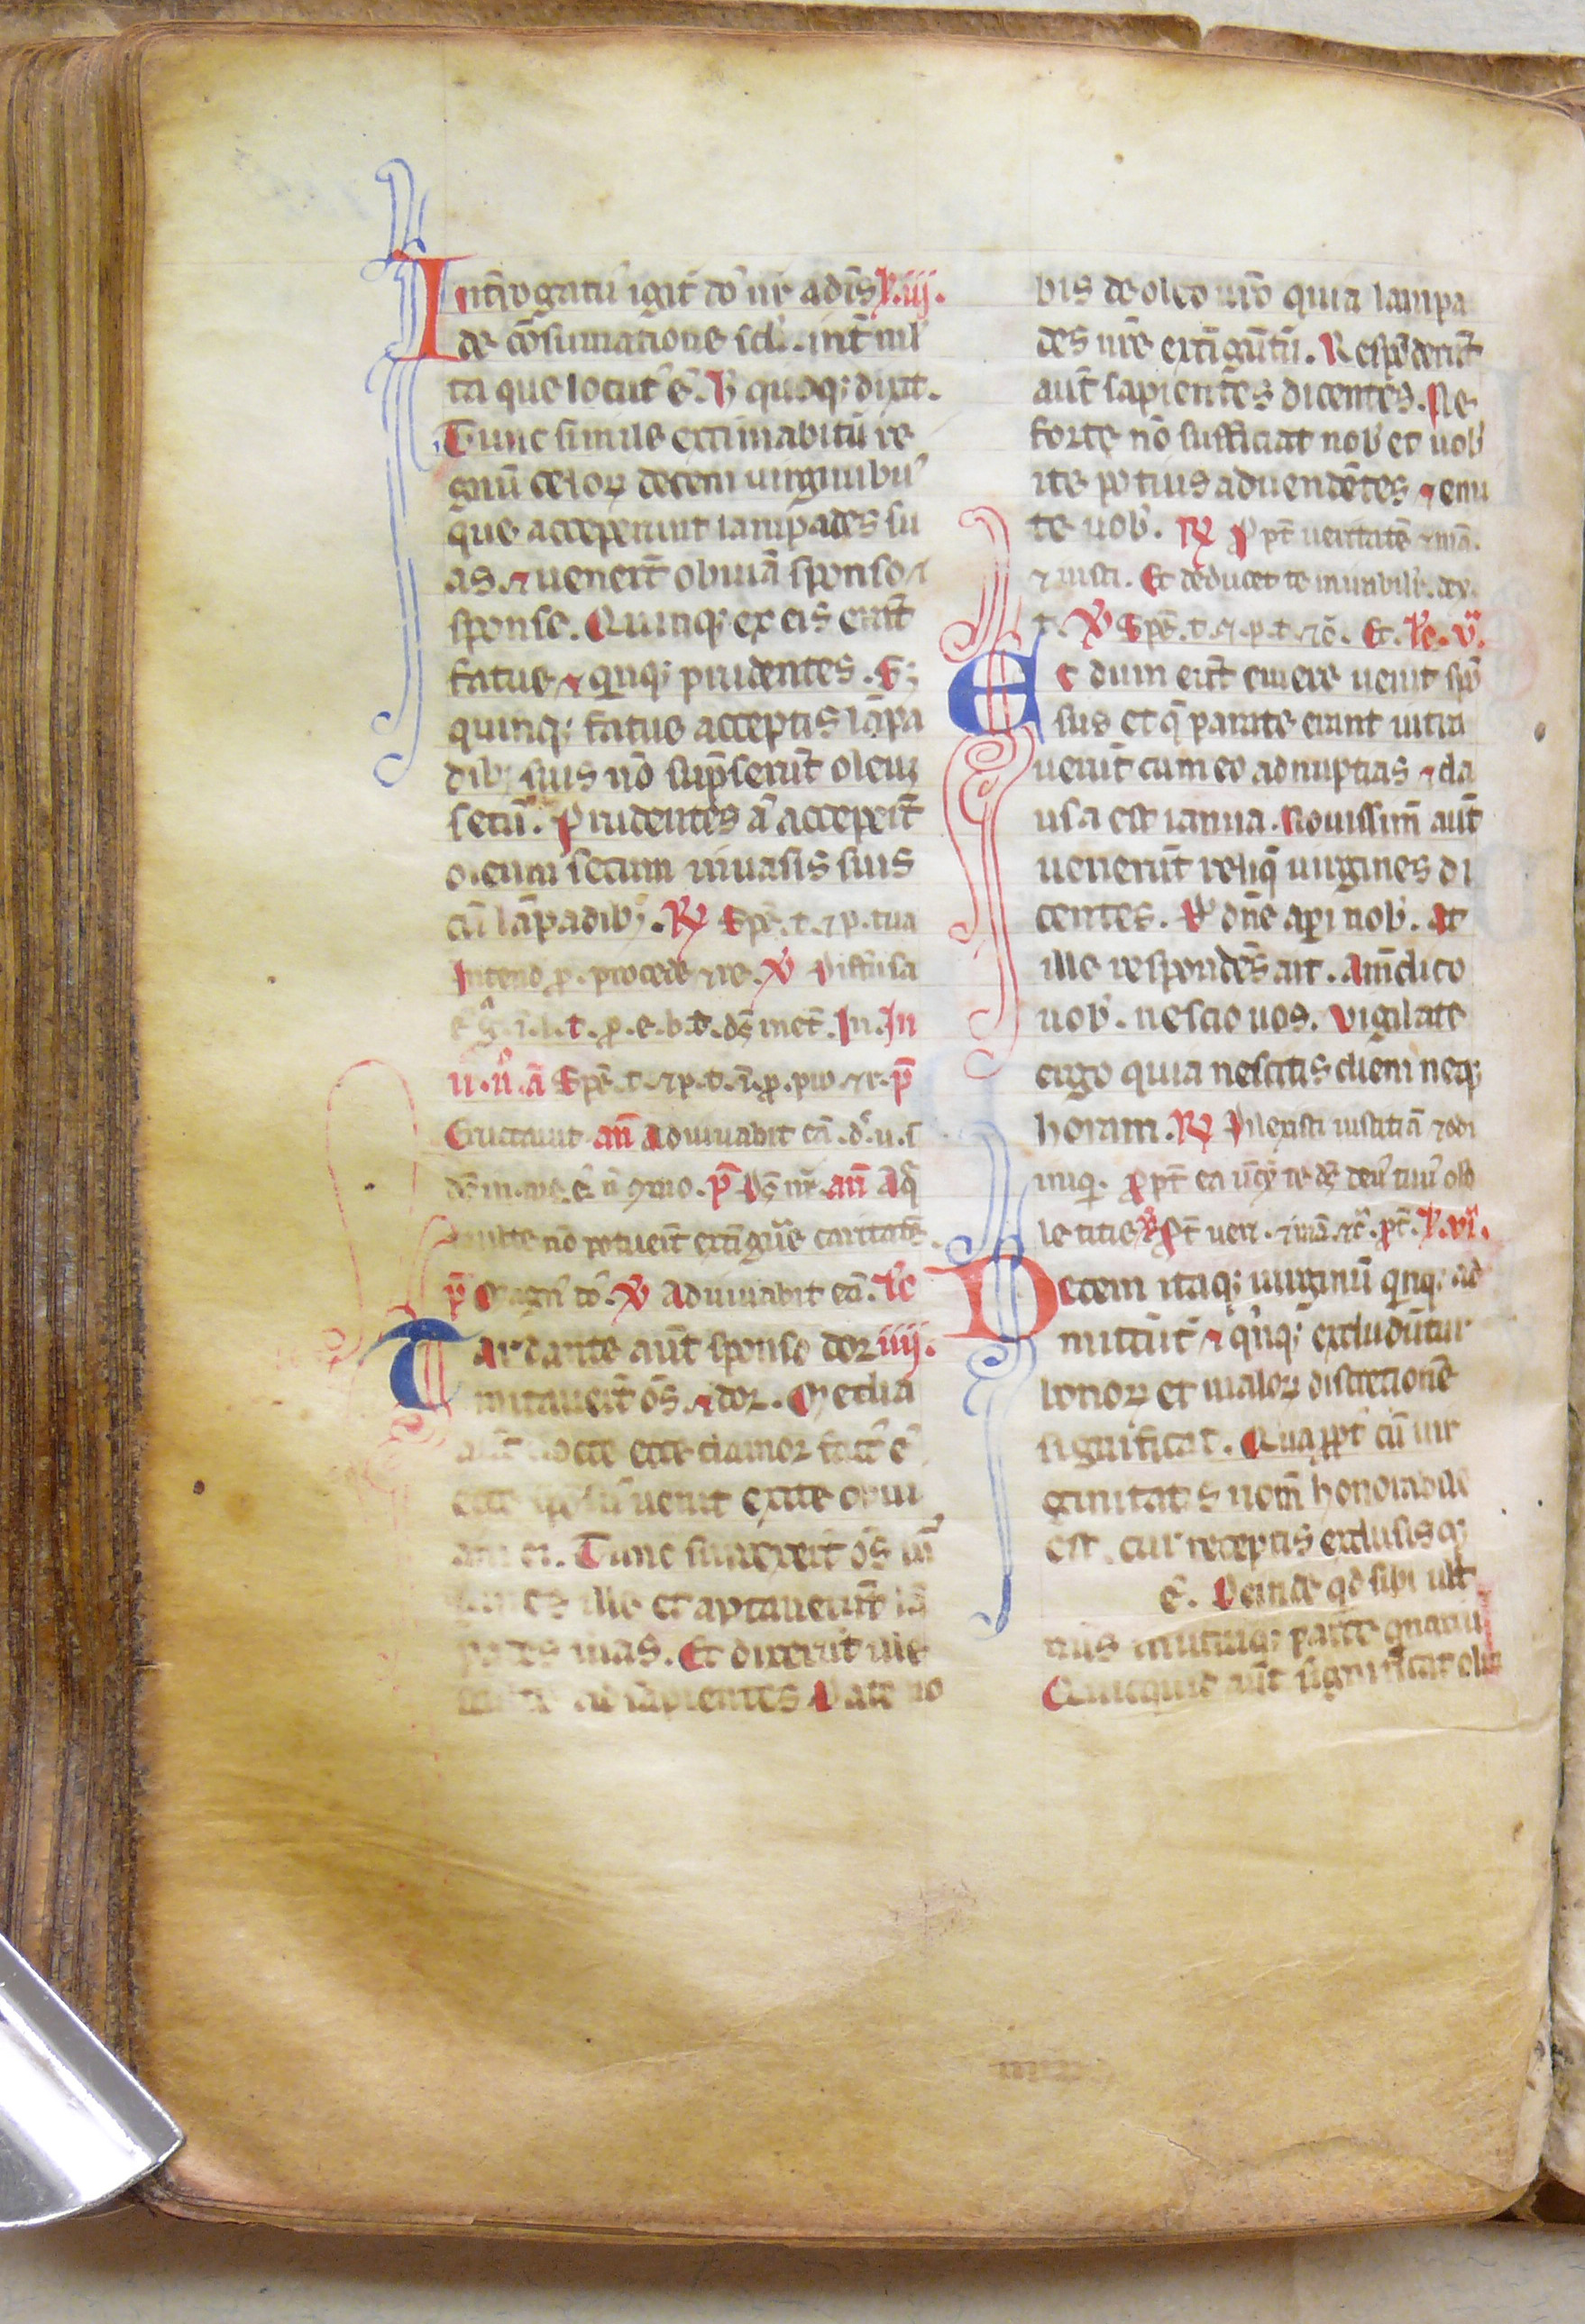 Int̄rogatu᷒ igit̄ do᷒ nr̄ a dis̄ l. iij.
de cōsumatione scl̄i. int̄ ml̄
ta que locut᷒ ē. h̄ quoq; dixit.
Tunc simile extimabitū re
gnū celoꝝ decem uirginibu᷒
que acceperunt lampades su
as. ⁊ uenert̄ obuiā sponso ⁊
sponse. Quinq; ex eis erāt
fatue ⁊ quīq; prudentes. S;
quinq; fatue acceptis lāpa
dib; suis nō sūpserūt oleuꝫ
secū. Prudentes āt acceperūt
oleum secum in uasis suis
cū lāpadib;. ℞ Spē. t. ⁊ p. tua
Intend p. procede ⁊ re. ℣ Diffusa
ē ḡ. i. l. t. p. e. b. t. ds̄ inet̄. In. In
ii. n̊. ā Spē. t. ⁊ p. t. i. p. pro. ⁊ r. p̄
Eructauit an̄ Adiuuabit eā. d᷒. u. s
ds̄ in. me. e᷒ n̄ 9mo. p̄ Ds̄ nr̄. an̄ Aq̄
multe nō potuert̄ extīguere caritatē.
p̄ Magn᷒ do᷒. ℣ Adiuuabit eā. le
Tardante aūt sponso dor iiij.
mitauert̄ oēs. ⁊ dor. Media
aūt nocte ecce clamor fact᷒ ē
ecce sponsu᷒ uenit exite obui
am ei. Tunc surrexert̄ oēs uir᷒
ille et aptauerūt lā
pades suas. Et dixerūt
sapientes Date no
bis de oleo uro̅ quia lampa
des nrē extīguūtū. Respōderūt
aūt sapientes dicentes. Ne
forte nō sufficiat nob᷒ et uob᷒
ite potius ad uendētes ⁊ emi
te uob᷒. ℞ Ppt̄ ueritatē ⁊ mā.
⁊ iusti. Et deducet te mirabilr̄. dex.
t. ℣ Spē. t. ⁊. p. t. ⁊c̄. Et. le. v.
Et dum erūt emere uenit spō
sus et q̄ parate erant intra
uerūt cum eo ad nuptias ⁊ cla
usa est ianua. Nouissim̄ aūt
uenerūt reliq̄ uirgines di
centes. D᷒ dn̄e aperi nob᷒. At
ille respondēs ait. Amēdico
uob᷒. nescio uos. Vigilate
ergo quia nescitis diem neq;
horam. ℞ Dilexisti iustitiā ⁊ odi
iniq̄. Ppt̄ ea ūx̄ te ds̄ deu᷒ tuu᷒ oleo
letitie ℣ Pt̄ ueri. ⁊ mā. ⁊c̄. pt̄. l. vi.
Decem itaq; uirginū qnq; ad
mittūt̄ ⁊ qnq; excludūtur
bonoꝝ et maloꝝ discretionē
significat. Quappt̄ cū uir
ginitatis nom̄ honorabile
est. cur receptis exclusisq;
ē. Deinde qd sibi ult̄
parte
Quicquid aūt significat oleū